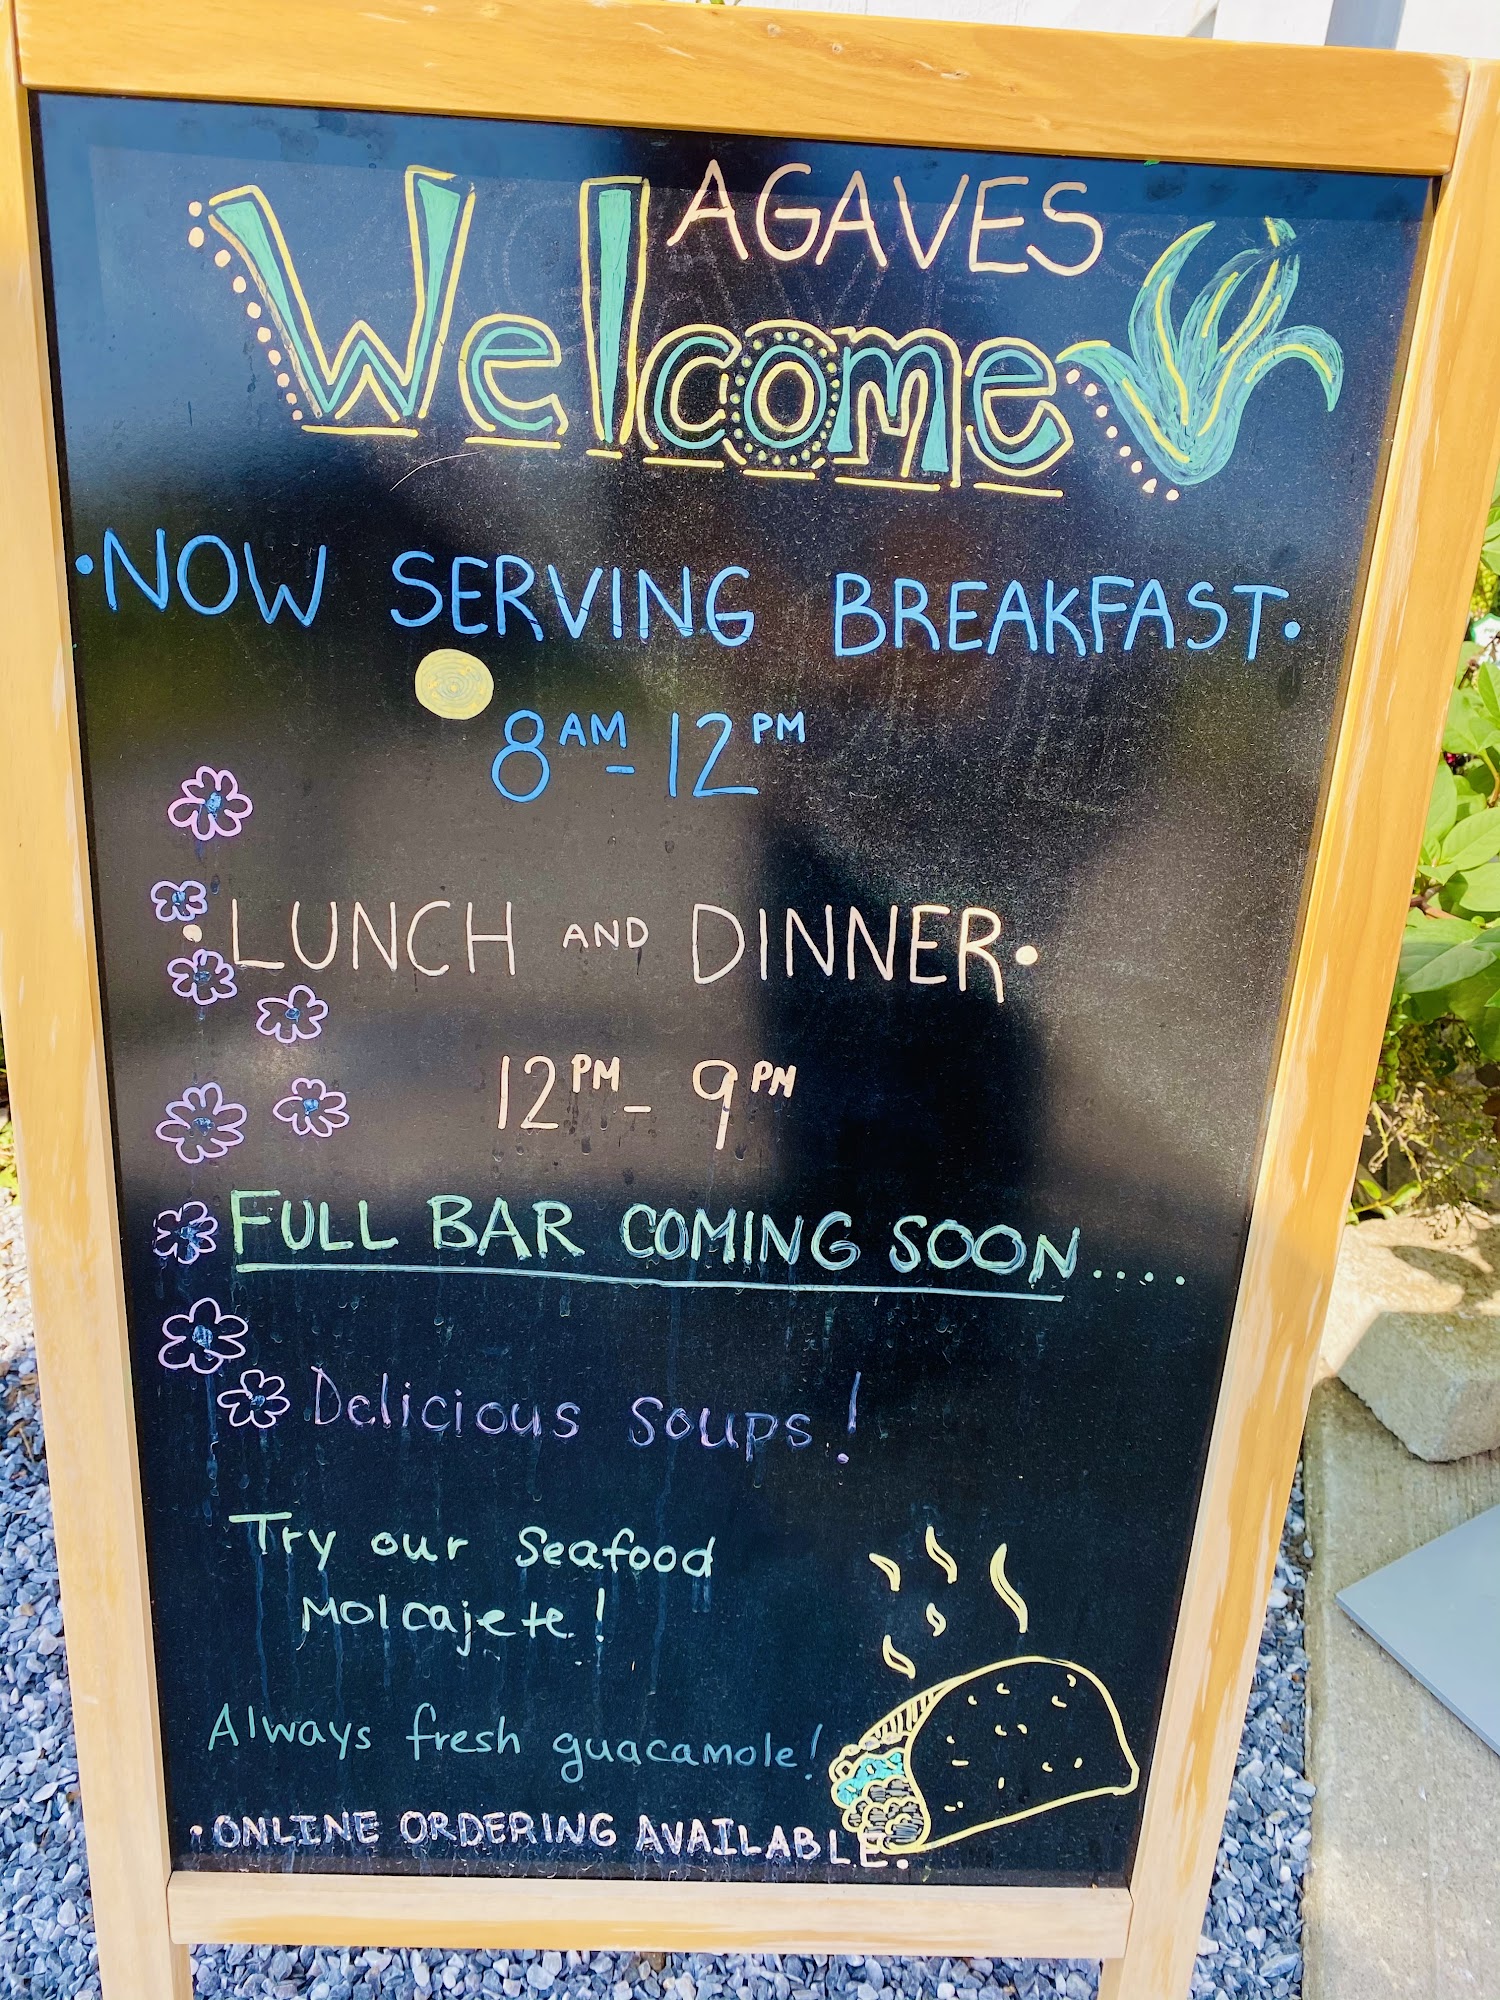 AGAVES
Welcome
·NOW SERVING BREAKFAST·
8AM-12PM
·LUNCH AND DINNER·
12PM-9PM
FULL BAR COMING SOON....
Delicious Soups!
Try our Seafood
Molcajete!
Always fresh guacamole!
·ONLINE ORDERING AVAILABLE.